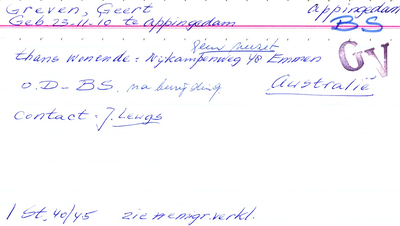 Greven, Geert Appingedam
Geb. 23-11-10 te Appingedam BS
GV
geëmigreerd
thans wonende: Nijkampenweg 48 Emmen
O.D-BS. na bevrijding Australië
contact: J. Lewgs
1 St. 40/45 zie nemigr. verkl.